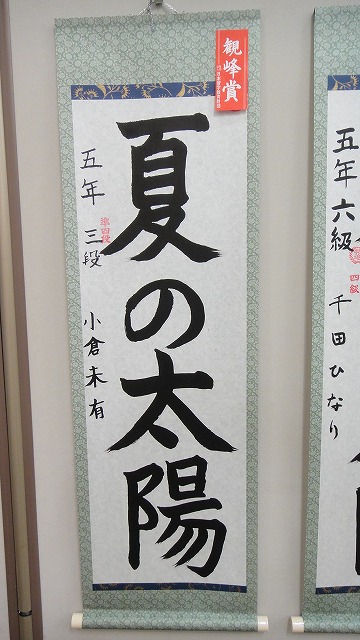 観峰賞
夏の太陽
五年 三段 小倉未有
準四段
五年六級 千田ひなり
四級